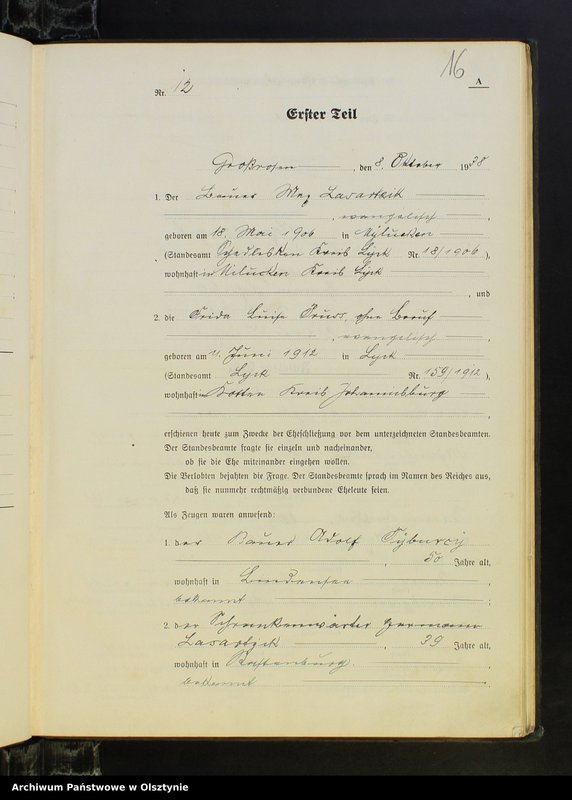 16
A
Nr. 12
Erster Teil
Großrosen, den 8. Oktober 1938
1. Der Bauer Max Lasarzik
, evangelisch
geboren am 18. Mai 1906 in Milucken
(Standesamt Kreis Lyck Nr. 18/1906 ),
wohnhaft in Milucken Kreis Lyck
, und
2. die Frida Luise ohne Beruf
, evangelisch
geboren am 11. Juni 1912 in Lyck
(Standesamt Lyck Nr. 159/1912 ),
wohnhaft in Kotten Kreis Johannisburg
,
erschienen heute zum Zwecke der Eheschließung vor dem unterzeichneten Standesbeamten.
Der Standesbeamte fragte sie einzeln und nacheinander,
ob sie die Ehe miteinander eingehen wollen.
Die Verlobten bejahten die Frage. Der Standesbeamte sprach im Namen des Reiches aus,
daß sie nunmehr rechtmäßig verbundene Eheleute seien.
Als Zeugen waren anwesend:
1. der Bauer Adolf Cyburcy
, 50 Jahre alt,
wohnhaft in
bekannt ;
2. der Schrankenwärter Hermann
Lasarzick , 39 Jahre alt,
wohnhaft in Rastenburg.
bekannt
Archiwum Państwowe w Olsztynie